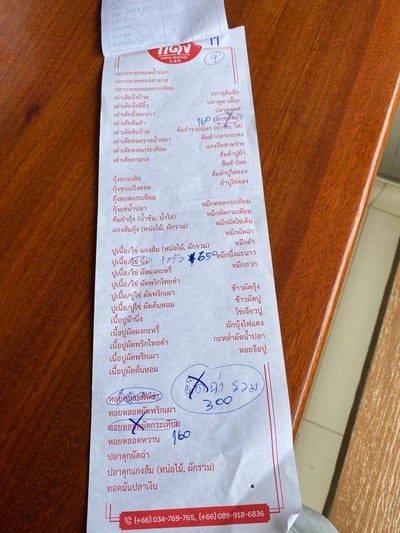 แดง
17
9
ปลากระพงทอดน้ำปลา
ปลากระพงทอดสามรส
ปลากระพงทอดกระเทียม
เต๋าเต้ยนึ่งบ๊วย
เต๋าเต้ยนึ่งซีอิ๊ว
เต๋าเต้ยนึ่งมะนาว
เต๋าเต้ยต้มยำ
เต๋าเต้ยต้มบ๊วย
เต๋าเต้ยทอดราดน้ำปลา
เต๋าเต้ยทอดกระเทียม
เต๋าเต้ยสามรส
กุ้งอบเกลือ
กุ้งชุบแป้งทอด
กุ้งทอดกระเทียม
กุ้งแช่น้ำปลา
ต้มยำกุ้ง (น้ำข้น, น้ำใส)
แกงส้มกุ้ง (หน่อไม้, ผักรวม)
ปูเนื้อ/ไข่ แกงส้ม (หน่อไม้, ผักรวม)
ปูเนื้อ/ไข่ นึ่ง 1 ตัว 650
ปูเนื้อ/ไข่ ผัดผงกะหรี่
ปูเนื้อ/ปูไข่ ผัดพริกไทยดำ
ปูเนื้อ/ปูไข่ ผัดต้นหอม
ปูเนื้อปูม้านึ่ง
ปูเนื้อผัดผงกะหรี่
ปูเนื้อผัดพริกไทยดำ
ปูเนื้อผัดพริกเผา
ปูเนื้อผัดต้นหอม
หอยหลอดผัดฉ่า
หอยหลอดผัดพริกเผา
หอยหลอดผัดกระเทียม
หอยหลอดหวาน 160
ปลาดุกผัดฉ่า
ปลาดุกแกงส้ม (หน่อไม้, ผักรวม)
ทอดมันปลาเงิน
ปลาทูต้มส้ม
ปลาทูฉาเตี๊ยะ
ปลาทูทอด
160
ต้มยำรวมมิตร (น้ำข้น, ใส)
ต้มยำปลากระพง
แกงจืดสาหร่าย
ส้มตำปูม้า
ส้มตำไทย
ส้มตำปูไข่ดอง
ยำปูไข่ดอง
หมึกทอดกระเทียม
หมึกผัดกระเทียม
หมึกผัดไข่เค็ม
หมึกผัดฉ่า
หมึกยำ
หมึกนึ่งมะนาว
หมึกลวก
ข้าวผัดกุ้ง
ข้าวผัดปู
ไข่เจียวปู
ผักบุ้งไฟแดง
กะหล่ำผัดน้ำปลา
หอยจ๊อปู
ผัดฉ่า รวม
300
(+66) 034-769-765, (+66) 089-918-6836